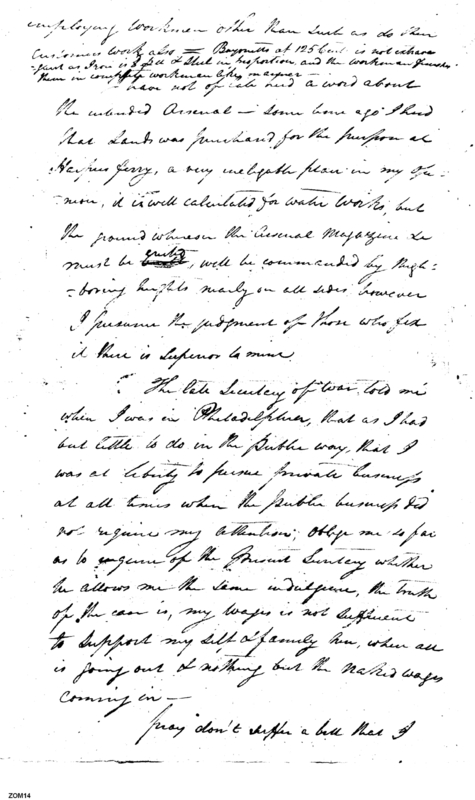 employing workmen other than such as do their
Customers work also = Bayonets at 125 Cent. is not extrava-
-gant as Iron is & Steel in proportion and the workmen finishes
them in complete workman like manner —
have not of late heard a word about
the intended Arsenal — some time ago I heard
that Lands was purchased for the purpose at
Harpers ferry, a very ineligable place in my opi-
-nion, it is well calculated for water works, but
the ground whereon the Arsenal Magazine &c
must be erected, will be commanded by neigh-
-boring heights nearly on all sides, however
I presume the judgment of those who fix
it there is Superior to mine
The late Secretary of War told me
when I was in Philadelphia, that as I had
but little to do in the Public way, that I
was at liberty to pursue private business
at all times when the Public business did
not require my attention; oblige me so far
as to enquire of the Present Secretary whether
he allows me the same indulgence, the truth
of the case is, my wages is not Sufficient
to Support my self & family here, when all
is going out & nothing but the Naked wages
coming in —
pray don't suffer a bill that I
ZOM14